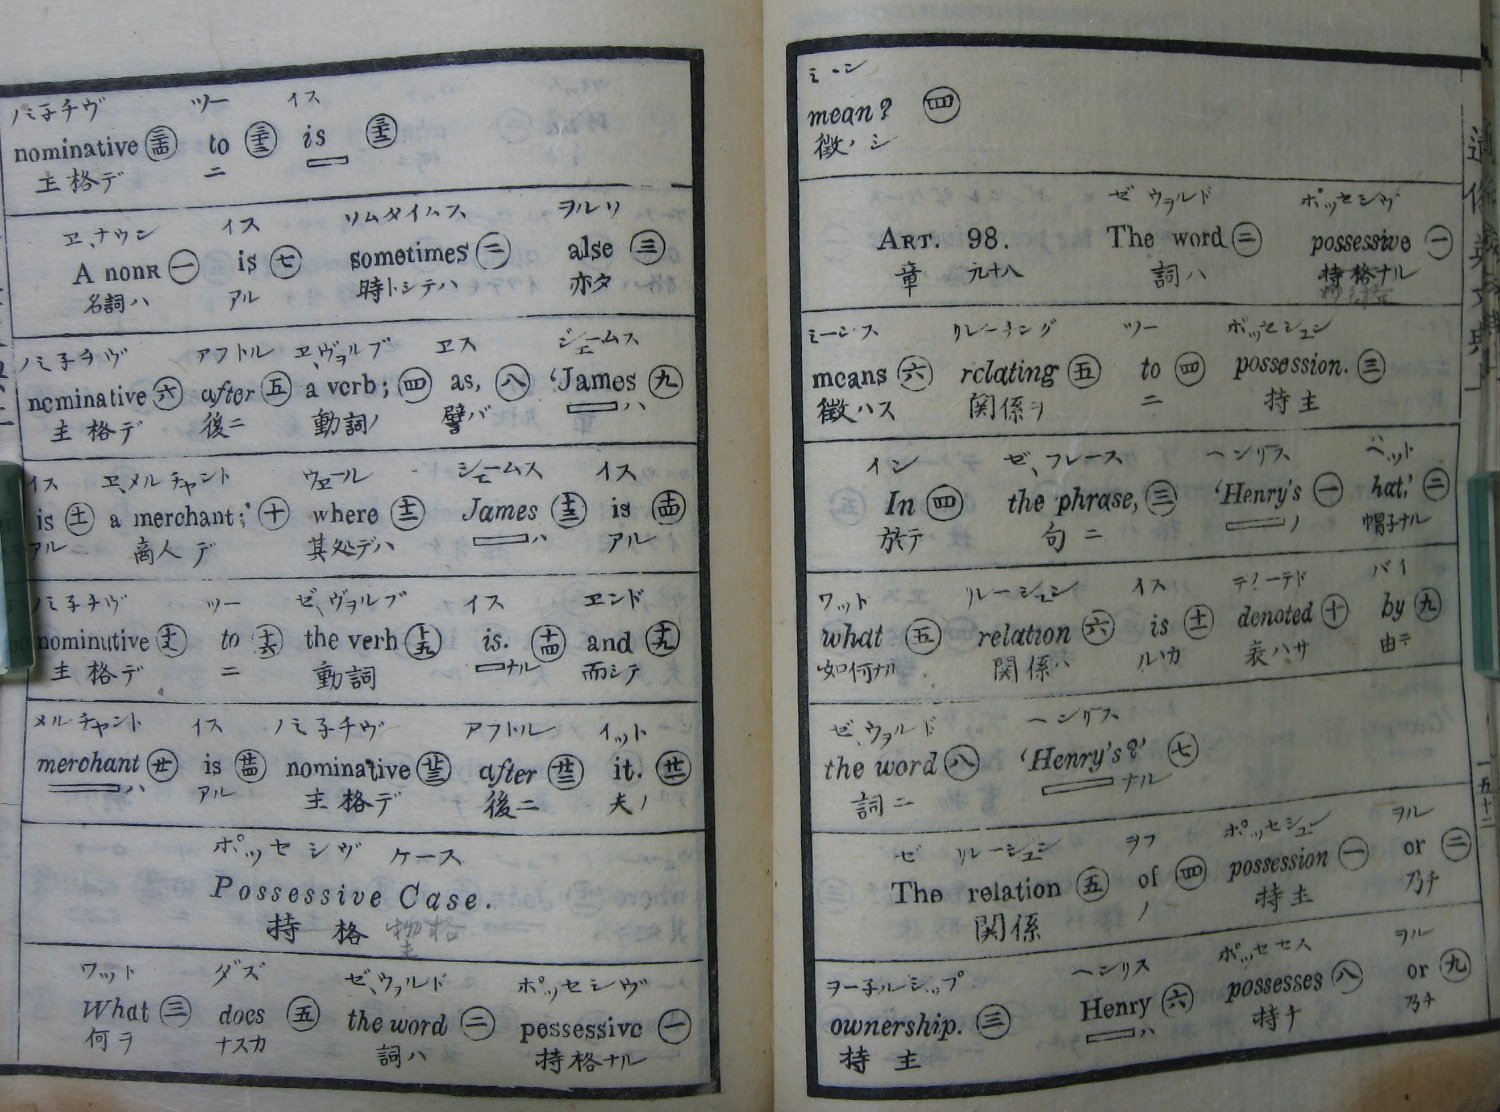 ノミ子チヴ ツー イス
nominative to is
主格デ ニ
ヱ、ナウン イス ソムタイムス ヲルソ
A nonR 一 is 七 sometimes 二 alse 三
名詞ハ アル 時トシテハ 亦タ
ノミ子チヴ アフトル ヱ、ヴヲルブ ヱス ジェームス
ncminative 六 after 五 a vcrb; 四 as, 八 ‘James 九
主格デ 後ニ 動詞ノ 譬バ ハ
イス ヱ、メルチャント ウェール ジェームス イス
is 十一 a merchant;’ 十 where 十二 James 十三 is 十四
アル 商人デ 其処デハ ハ アル
ノミ子チヴ ツー ゼ、ヴヲルブ イス ヱンド
nominutive 十七 to 十六 the verh 十五 is. 十四 and 十九
主格デ ニ 動詞 ナル 而シテ
メルチャント イス ノミ子チヴ アフトル イット
merchant 廿 is 廿四 nominative 廿三 after 廿二 it. 廿一
ハ アル 主格デ 後ニ 夫ノ
ポッセシヴ ケース
Possessive Case.
持格 物主格
ワット ダズ ゼ、ウヲルド ポッセシヴ
What 三 docs 五 the word 二 pessessivc 一
何ヲ ナスカ 詞ハ 持格ナル
ミーン
mean? 四
徴ハシ
ゼ ウヲルド ポッセシヴ
ART. 98. The word 二 possessive 一
章 九十八 詞ハ 持格ナル
ミーンス リレーチング ツー ポッセシュン
mcans 六 rclating 五 to 四 possession. 三
徴ハス 関係ヲ ニ 持主
イン ゼ、フレース ヘンリス ヘット
In 四 the phrase, 三 ‘Henry's 一 hat,’ 二
於テ 句ニ ノ 帽子ナル
ワット リレーション イス デノーテド バイ
what 五 relation 六 is 十一 denoted 十 by 九
如何ナル 関係ハ ルカ 表ハサ 由テ
ゼ、ウヲルド ヘンリス
the word 八 ‘Henry's?’ 七
詞ニ ナル
ゼ リレーション ヲフ ポッセシュン ヲル
The relation 五 of 四 possession 一 or 二
関係 ノ 持主 乃チ
ヲー子ルシップ ヘンリス ポッセセス ヲル
ownership. 三 Henry 六 possesses 八 or 九
持主 ハ 持チ 乃チ
一五十二